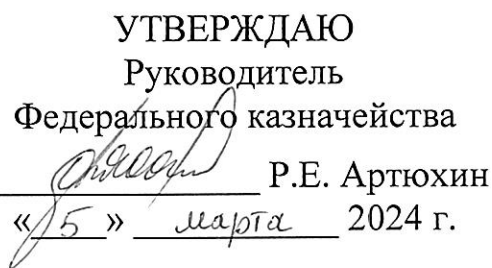 УТВЕРЖДАЮ
Руководитель
Федерального казначейства
Р.Е. Артюхин
«5» марта 2024 г.